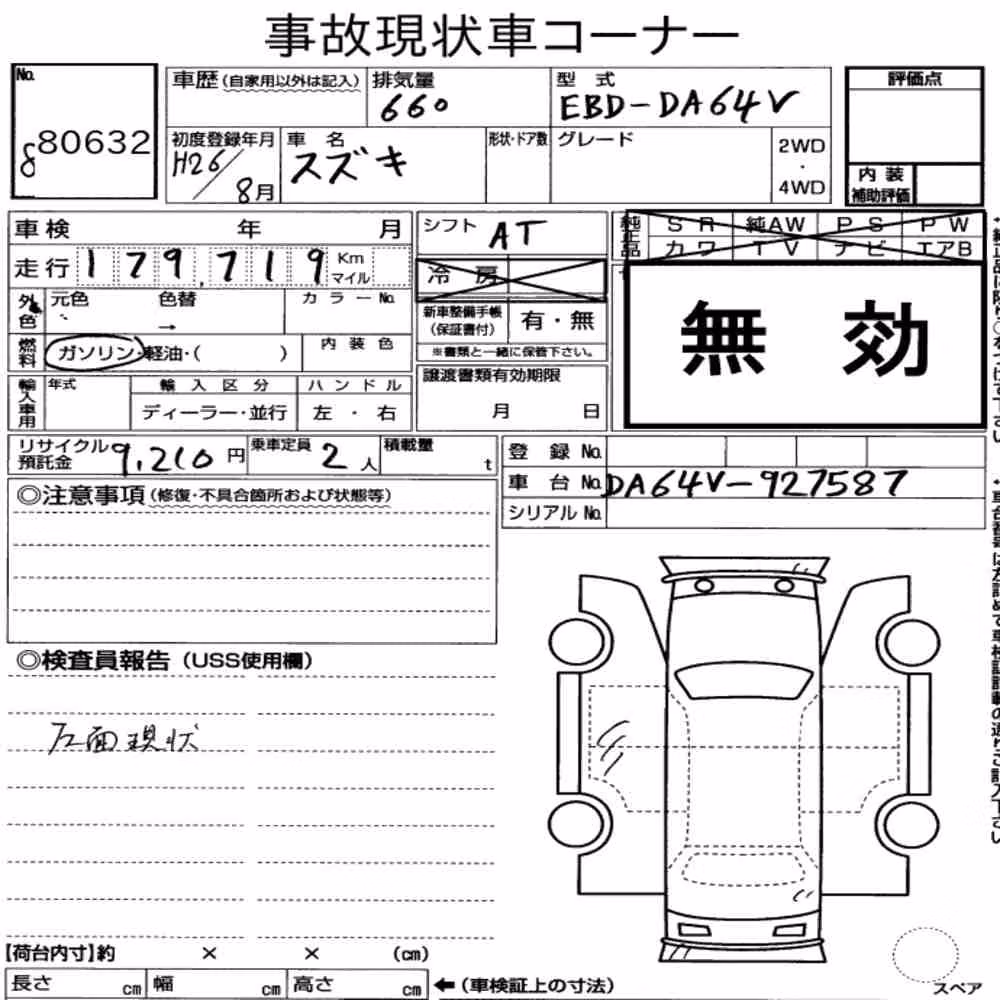 事故現状車コーナー
No. 80632
車歴(自家用以外は記入) 排気量 660 型式 EBD-DA64V 評価点
初度登録年月 H26/8月 車名 スズキ 形状・ドア数 グレード 2WD・4WD
内装補助評価
車検 年 月 シフト AT 純正品 SR 純AW PS PW
カワ TV ナビ エアB
走行 179,719 Km マイル 冷房
外色 元色 色替 → カラーNo.
新車整備手帳(保証書付) 有・無
※書類と一緒に保管下さい。
無効
燃料 ガソリン・軽油・( ) 内装色
譲渡書類有効期限 月 日
輸入車用 年式 輸入区分 ハンドル
ディーラー・並行 左・右
リサイクル預託金 9,210円 乗車定員 2人 積載量 t
登録No.
車台No. DA64V-927587
シリアルNo.
◎注意事項(修復・不具合箇所および状態等)
◎検査員報告(USS使用欄)
左面現状
【荷台内寸】約 × × (cm)
長さ cm 幅 cm 高さ cm ←(車検証上の寸法)
スペア